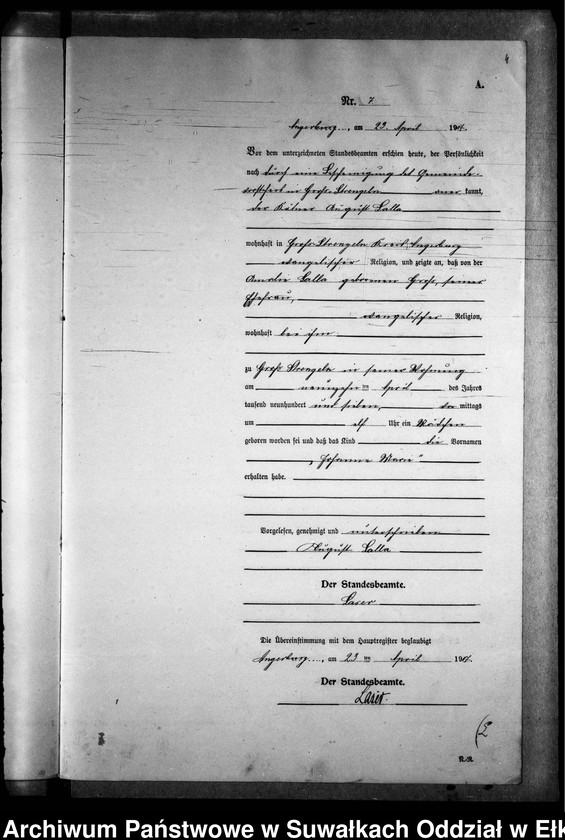 4
A.
Nr. 7
Angerburg, am 23. April 1907.
Vor dem unterzeichneten Standesbeamten erschien heute, der Persönlichkeit
nach durch eine Bescheinigung des Gemeinde-
vorstehers in Groß Strengeln aner kannt,
der Kätner August Salla
wohnhaft in Groß Strengeln Kreis Angerburg
evangelischer Religion, und zeigte an, daß von der
Amalie Salla geborenen Groß, seiner
Ehefrau,
evangelischer Religion,
wohnhaft bei ihm
zu Groß Strengeln in seiner Wohnung
am neunzehn ten April des Jahres
tausend neunhundert und sieben, vor mittags
um elf Uhr ein Mädchen
geboren worden sei und daß das Kind die Vornamen
„Johanne Marie“
erhalten habe.
Vorgelesen, genehmigt und unterschrieben
August Salla
Der Standesbeamte.
Laser
Die Übereinstimmung mit dem Hauptregister beglaubigt
Angerburg, am 23 ten April 1907.
Der Standesbeamte.
Laser.
Archiwum Państwowe w Suwałkach Oddział w Ełk